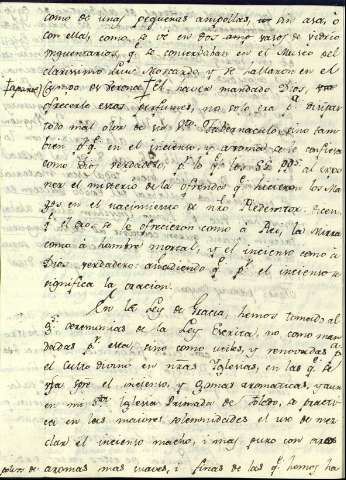 como de unas pequeñas ampollas, sin asa, ò
con ella, como se vè en dos amp vasos de vidrio
unguentarios, q̃ se conservaban en el Museo del
clarissimo Luis Moscardo, y se hallaron en el
Campo de Verona. El haver mandado Dios,
ofrecerle estos perfumes, no solo era pª evitar
todo mal olor de su Stº Tabernaculo, sino tam
bien pª q̃ en el incienso, y aroma se le confiese
como Dios verdadero, pr lo q̃ los SS. PPs. al expo
ner el misterio de la ofrenda q̃ hicieron los Ma
gos en el nacimiento de nrô Redemptor: dicen
q̃ el oro se le ofrecieron como à Rei, la Mirra
como à hombre mortal, y el incienso como a
Dios verdadero: añadiendo q̃ pr el incienso se
significa la oracion.
En la Ley de Gracia, hemos tomado al
gs ceremonias de la Ley Escrita, no como man
dadas pr esta, sino como utiles, y renovadas pª
el culto divino en nrãs Iglesias, en las q̃ se
usa el incienso, y Gomas aromaticas, y aun
en mi Stª Iglesia Primada de Toledo, se practi
ca en las maiores solemnidades el uso de mez
clar el incienso macho, i mas puro con
polvos de aromas mas suaves, i finas de las q̃ hemos ha